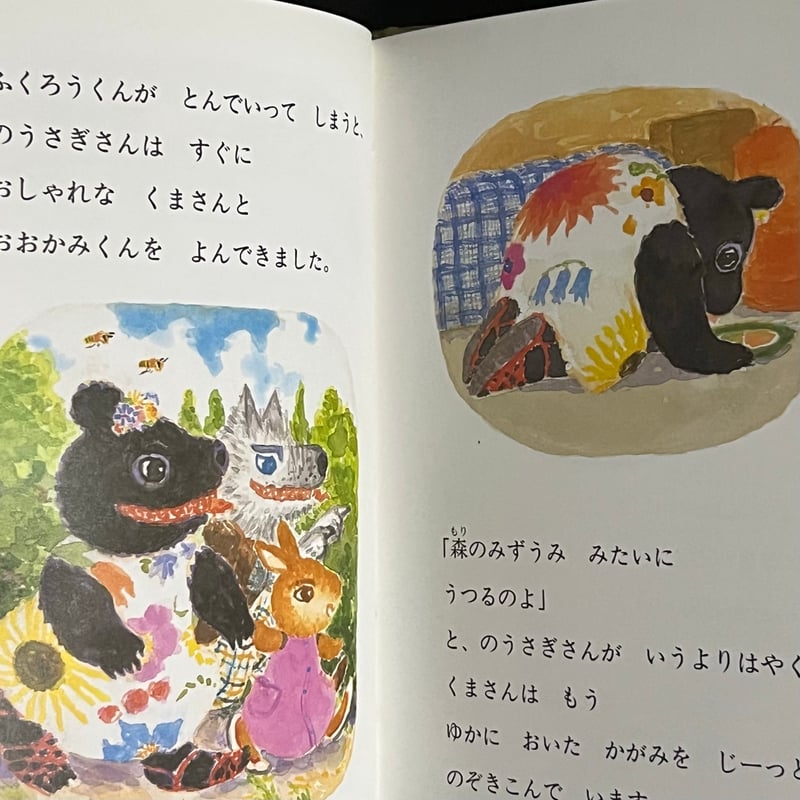 ふくろうくんが とんでいって しまうと、
のうさぎさんは すぐに
おしゃれな くまさんと
おおかみくんを よんできました。
「森のみずうみ みたいに
もり
うつるのよ」
と、のうさぎさんが いうよりはやく
くまさんは もう
ゆかに おいた かがみを じーっと
のぞきこんで います